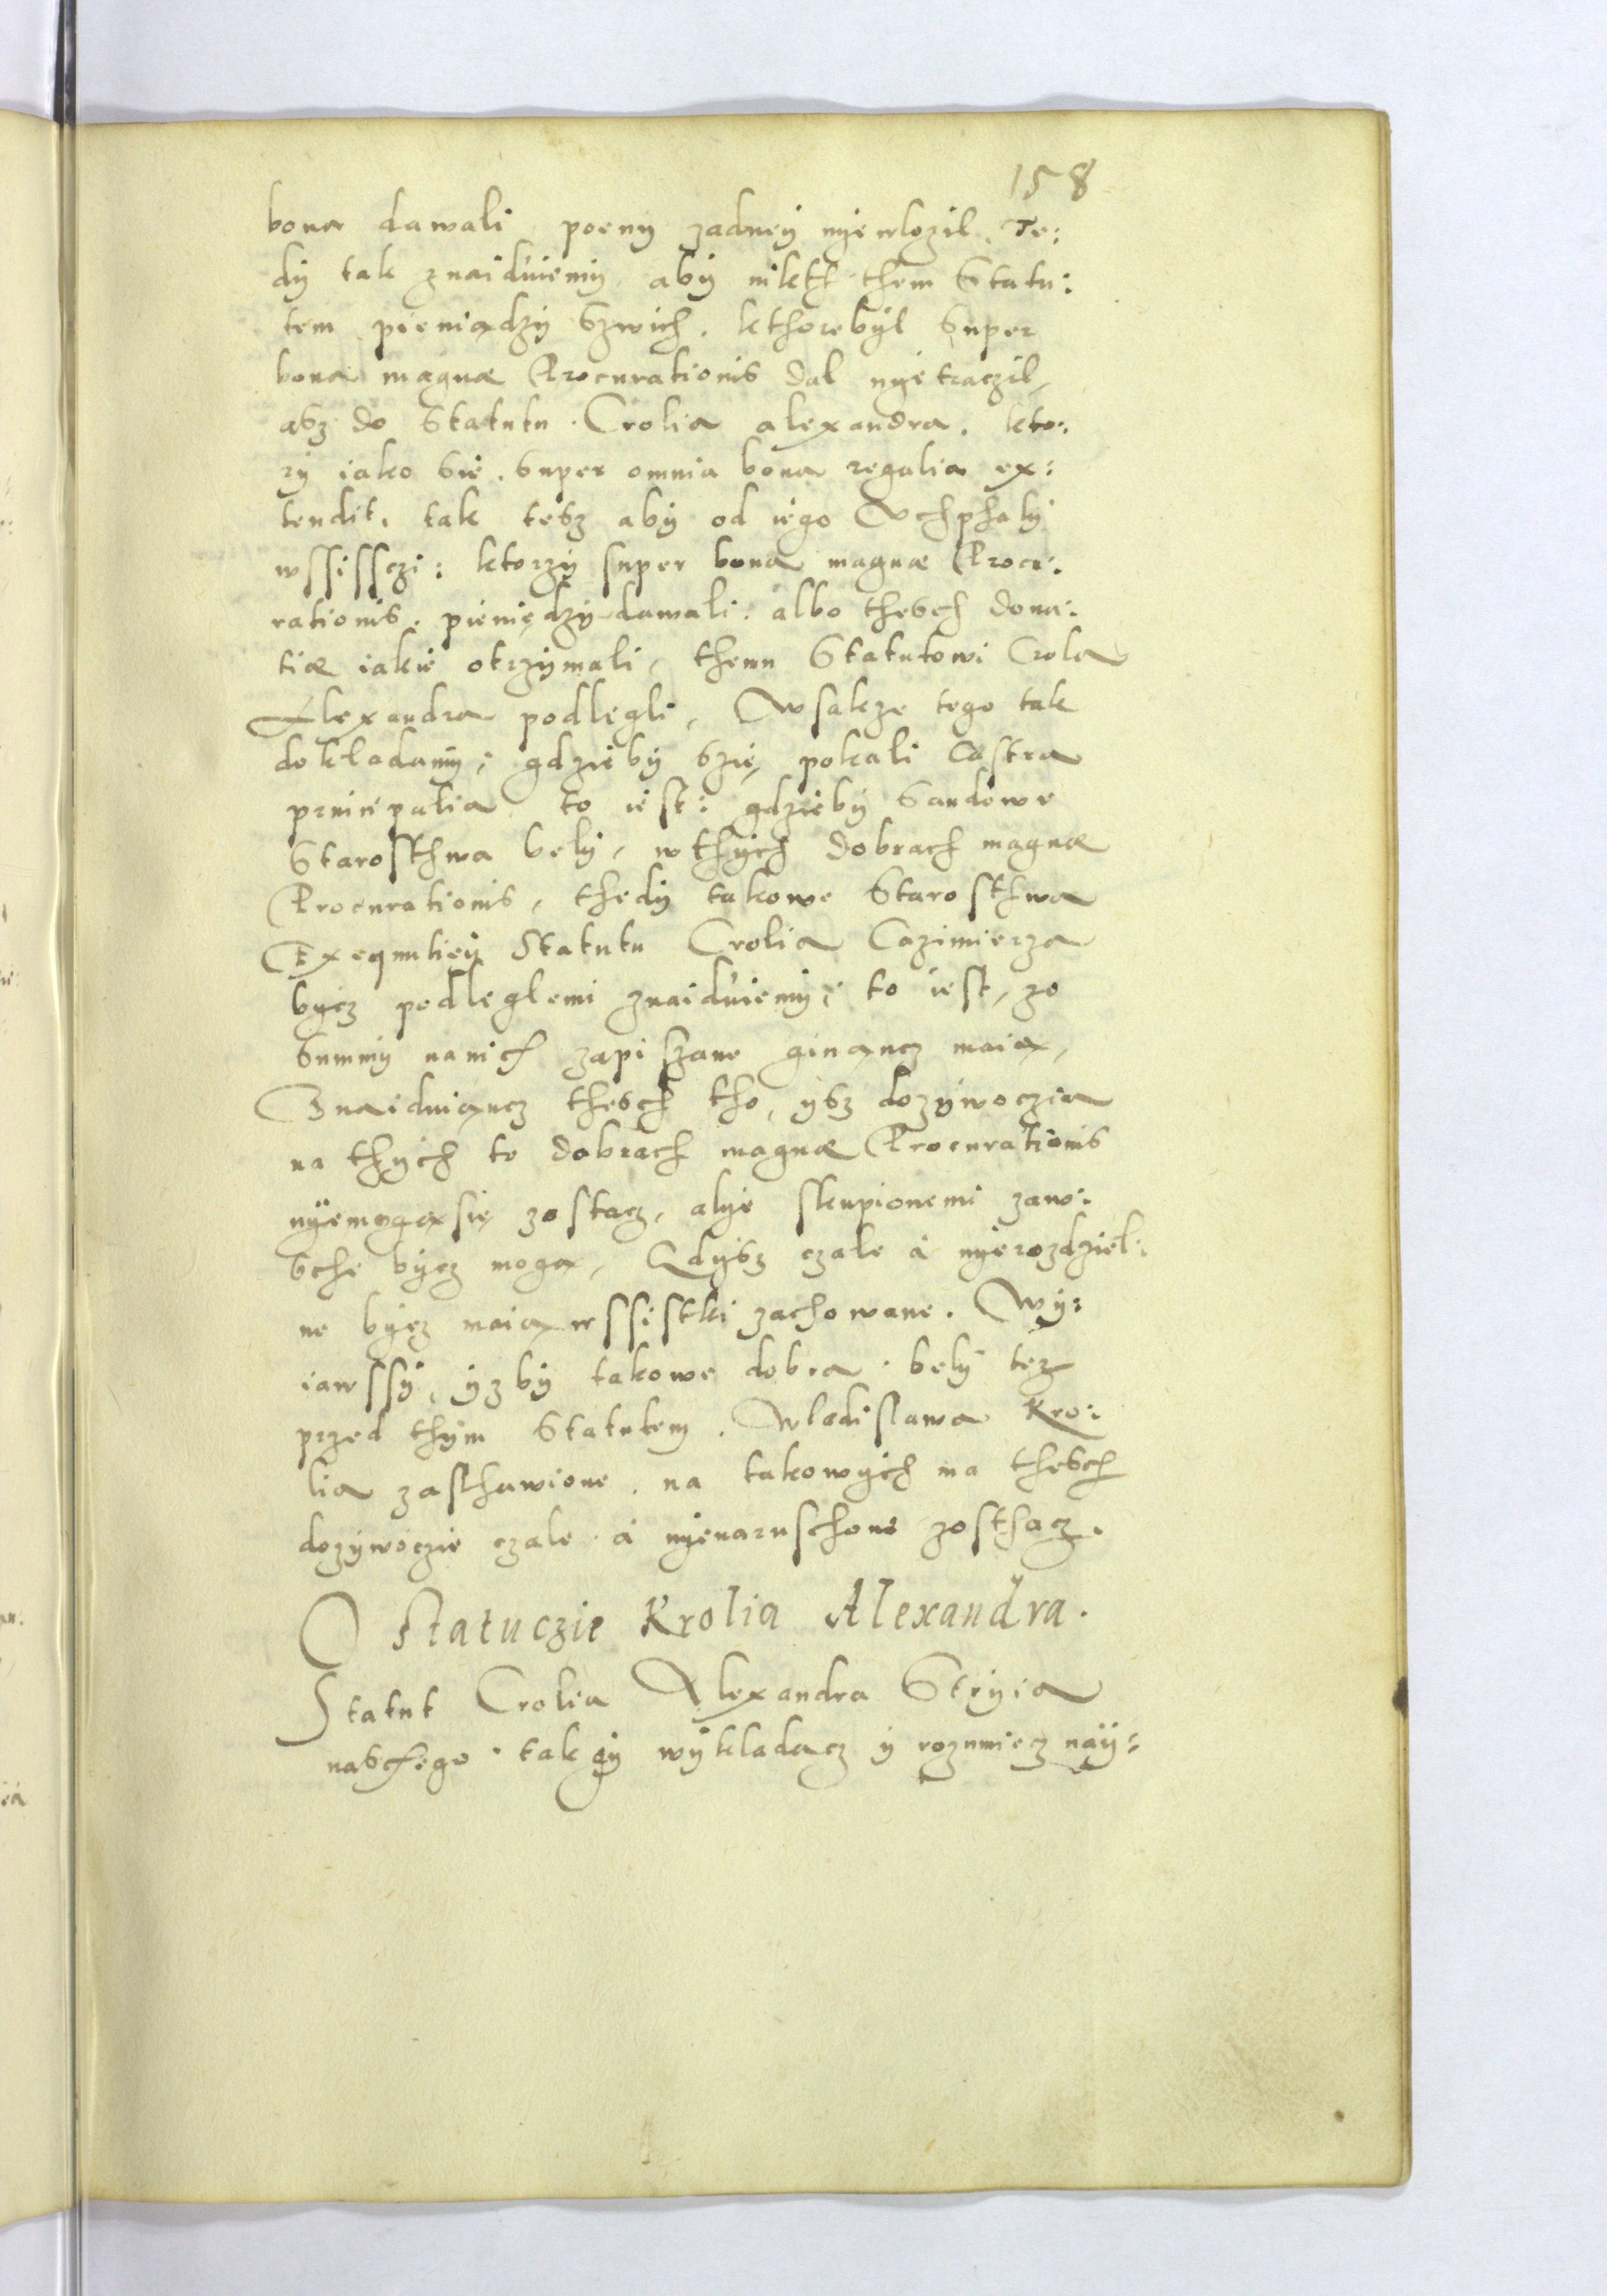 158
bona dawali poeny zadneÿ nÿewlozil. Te:
dÿ tak znaiduiemÿ abÿ nikth them Statu:
tem pieniądzÿ Szwich. kthorebÿl Super
bona magnæ Procurationis dal nÿetraczil,
asz do Statutu Crolia alexandra. kto:
rÿ iako Sie. Super omnia bona regalia ex:
tendit. tak tesz abÿ od iego Uchphalÿ
wssissczi: ktorzÿ super bona magnæ Procu:
rationis. pieniędzÿ dawali. albo thesch dona:
tiæ iakie otrzÿmali, themu Statutowi Crola
Alexandra podlegli, Wsakze tego tak
dokładamÿ; gdziebÿ Szię pokali Castra
principalia to iest: gdziebÿ Sandowe
Starosthwa belÿ, w thÿch dobrach magnæ
Procurationis, thedÿ takowe Starosthwa
Exequutieÿ Statutu Crolia Cazimierza
bÿcz podleglemi znaiduiemÿ; to iest, ze
Summÿ nanich zapiszane ginąncz maią,
Znaiduiąncz thesch tho, ÿsz dozÿwoczia
na thÿch to dobrach magnæ Procurationis
nÿemogąsię zostacz, alÿe skupionemi zaw:
sche bÿcz mogą, Gdÿsz czale á nÿerozdziel:
ne bÿcz maią wssistki zachowane. Wÿ:
iawssÿ, ÿzbÿ takowe dobra belÿ tez
przed thÿm Statutem. Wladislawa Kro:
lia zasthawione. na takowÿch ma thesch
dozÿwoczie czale á nÿenaruschone zosthacz.
O Statuczie Krolia Alexandra.
Statut Crolia Alexandra Strÿia
naschego tak gÿ wÿkladacz ÿ rozumiecz naÿ: